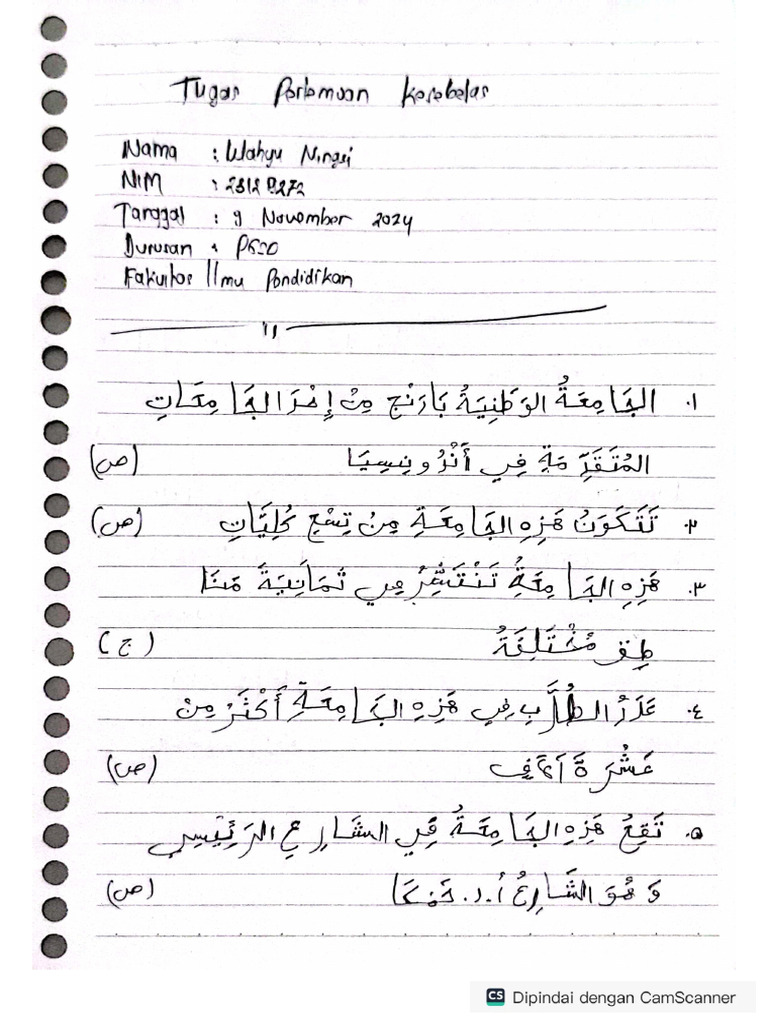 Tugas Pertemuan Kesebelas
Nama : Wahyu Ningsi
NIM : 23129272
Tanggal : 9 November 2024
Jurusan : PGSD
Fakultas Ilmu Pendidikan
١. الجَامِعَةُ الوَطَنِيَةُ بَادَنْج مِنْ إِحْدَ الجَامِعَاتِ
المُتَقَدِّمَةِ فِي أَنْدُونِيسِيَا (ص)
٢. تَتَكَوَنُ هَذِهِ الجَامِعَةِ مِنْ تِسْعِ كُلِيَّاتِ (ص)
٣. هَذِهِ الجَامِعَةُ تَنْتَشِرُ فِي ثَمَانِيَةَ مَنَا
طِق مُخْتَلِفَةُ (ج)
٤. عَدَدُ الطُلَّابِ فِي هَذِهِ الجَامِعَةِ أَكْثَرْ مِنْ
عَشْرَةَ آلَافِ (ص)
٥. تَقِعُ هَذِهِ الجَامِعَةُ فِي الشَارِعِ الرَئِيْسِي
وَهُوَ الشَارِعُ أ.د. حَمْكَا (ص)
CS Dipindai dengan CamScanner